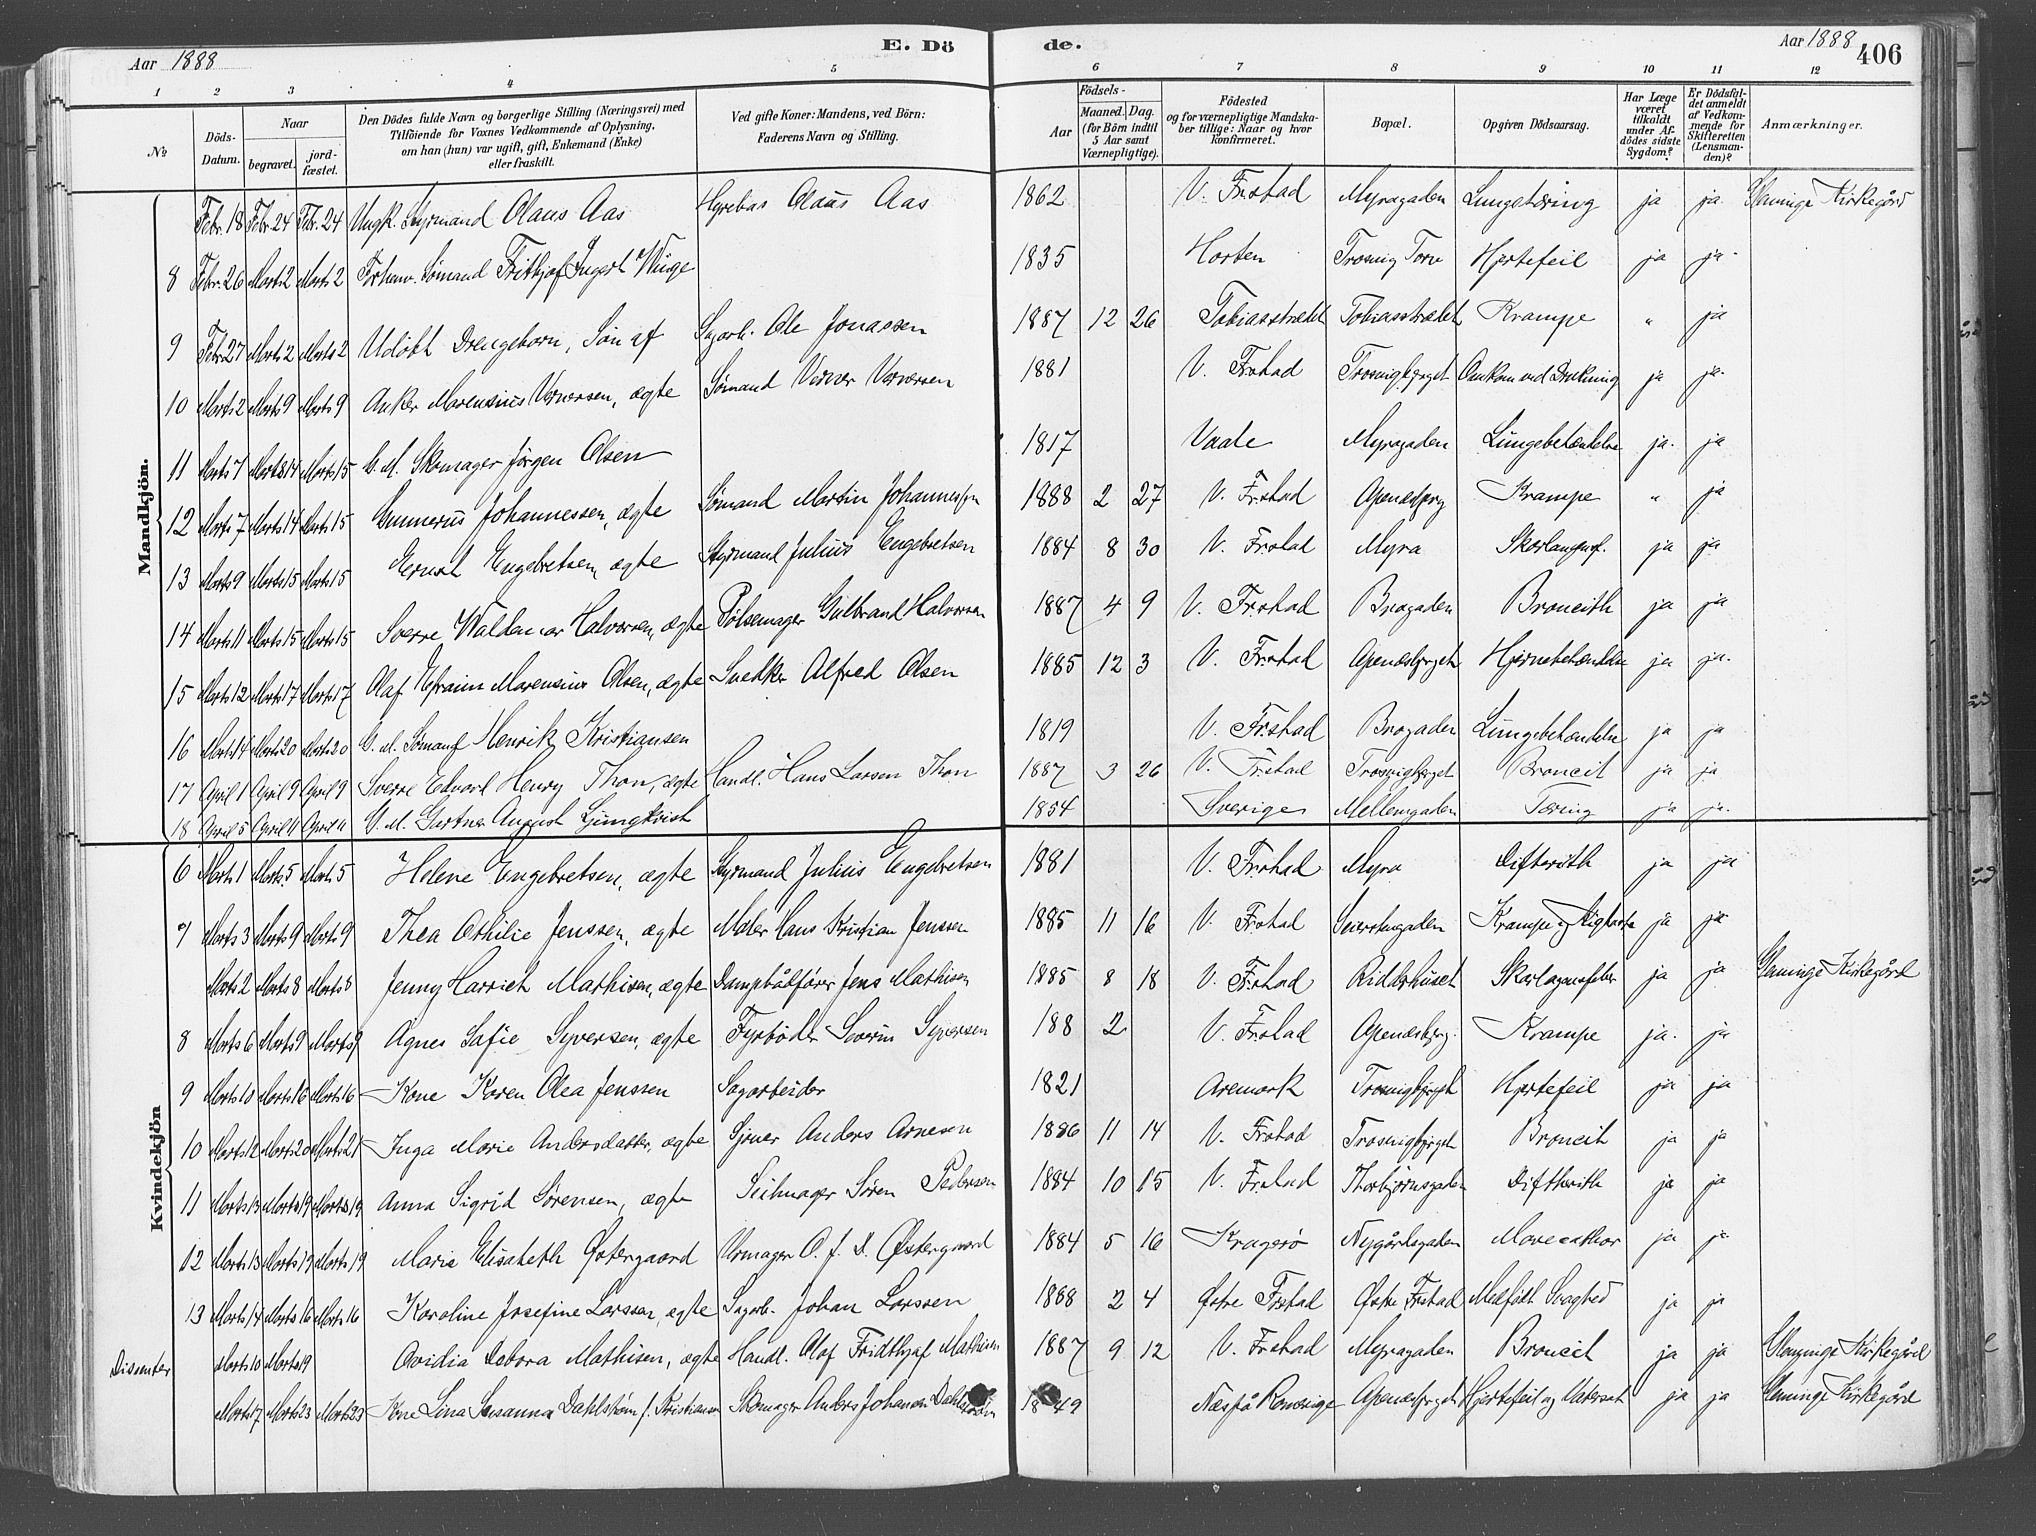 Aar 1888
E. Dö
de.
Aar 1888
406
1 2 3 4 5 6 7 8 9 10 11 12
No
Döds-Datum.
Naar
begravet.
jord-fæstet.
Den Dödes fulde Navn og borgerlige Stilling (Næringsvei) med
Tilföiende for Voxnes Vedkommende af Oplysning,
om han (hun) var ugift, gift, Enkemand (Enke)
eller fraskilt.
Ved gifte Koner: Mandens, ved Börn:
Faderens Navn og Stilling.
Födsels-
Aar
Maaned. Dag.
(for Börn indtil
5 Aar samt
Værnepligtige).
Födested
og for værnepligtige Mandska-
ber tillige: Naar og hvor
konfirmeret.
Bopæl.
Opgiven Dödsaarsag.
Har Læge
været
tilkaldt
under Af-
dödes sidste
Sygdom?
Er Dödsfal-
det anmeldt
af Vedkom-
mende for
Skifteretten
(Lensman-
den)?
Anmærkninger.
Mandkjön.
Febr. 18 Febr. 24 Febr. 24 Ungk. Styrmand Olaus Aas Hyrebas Olaus Aas 1862 V. Frstad Myragaden Lungetæring ja ja Glemminge Kirkegård
8 Febr. 26 Marts 2 Marts 2 Forhenv. Sømand Frithjof 1835 Horten Trosvig Torv Hjertefeil ja ja
9 Febr. 27 Marts 2 Marts 2 Udöbt Drengebarn, Søn af Sagarb. Ole Jonassen 1887 12 26 Tobiasstrædet Tobiasstrædet Krampe " ja
10 Marts 2 Marts 9 Marts 9 Anker Marensius Vernersen, ægte Sømand Verner Vernersen 1881 V. Frstad Trosvigbjerget Omkom ved Drukning ja ja
11 Marts 7 Marts 14 Marts 15 G. M. Skomager Jørgen Olsen 1817 Vaale Myragaden Lungebetændelse ja ja
12 Marts 7 Marts 14 Marts 15 Gunnerus Johannessen, ægte Sømand Martin Johannessen 1888 2 27 V. Frstad Apenæsbjerg Krampe " ja
13 Marts 9 Marts 15 Marts 15 Ernst Engebretsen, ægte Styrmand Julius Engebretsen 1884 8 30 V. Frstad Myra Skarlagensf. ja ja
14 Marts 11 Marts 15 Marts 15 Sverre Waldemar Halvorsen, ægte Pølsemager Gulbrand Halvorsen 1887 4 9 V. Frstad Brogaden Broncith ja ja
15 Marts 12 Marts 17 Marts 17 Olaf Efraim Marensius Olsen, ægte Snedker Alfred Olsen 1885 12 3 V. Frstad Apenæsbjerget Hjernebetændelse ja ja
16 Marts 14 Marts 20 Marts 20 G. M. Sømand Henrik Kristiansen 1819 V. Frstad Brogaden Lungebetændelse ja ja
17 April 1 April 9 April 9 Sverre Edvard Henry Thon, ægte Handl. Hans Larsen Thon 1887 3 26 V. Frstad Trosvigbjerget Broncit ja ja
18 April 5 April 11 April 11 G. M. Gartner August Ljungkvist 1854 Sverige Mellemgaden Tæring ja ja
Kvindekjön
6 Marts 1 Marts 5 Marts 5 Helene Engebretsen, ægte Styrmand Julius Engebretsen 1881 V. Frstad Myra Difterith ja ja
7 Marts 3 Marts 9 Marts 9 Thea Othilie Jenssen, ægte Maler Hans Kristian Jenssen 1885 11 16 V. Frstad Krampe ja ja
Marts 2 Marts 8 Marts 8 Jenny Harriet Mathisen, ægte Dampbådfører Jens Mathisen 1885 8 18 V. Frstad Ridderhuset Skarlagensfeber ja ja Glemminge Kirkegård
8 Marts 6 Marts 9 Marts 9 Agnes Sofie Syversen, ægte Fyrbøder Severin Syversen 188 2 V. Frstad Apenæsbjerg. Krampe ja. ja
9 Marts 10 Marts 16 Marts 16 Kone Karen Olea Jenssen Sagarbeider 1821 Aremark Trosvigbjerget Hjertefeil ja ja
10 Marts 12 Marts 20 Marts 21 Inga Marie Andersdatter, ægte Sjouer Anders Arnesen 1886 11 14 V. Frstad Trosvigbjerget Broncit ja ja
11 Marts 13 Marts 19 Marts 19 Anna Sigrid Sørensen, ægte Seilmager Søren Pedersen 1884 10 15 V. Frstad Thorbjørnsgaden Diftherith ja ja
12 Marts 13 Marts 19 Marts 19 Marie Elisabeth Østergaard Urmager O. J. D. Østergaard 1884 5 16 Kragerø Nygårdsgaden Mavecathar ja ja
13 Marts 14 Marts 16 Marts 16 Karoline Josefine Larssen, ægte Sagarb. Johan Larssen 1888 2 4 Østre Frstad Østre Frstad Medfødt Svaghed ja ja
Dissenter Marts 10 Marts 19 Ovidia Debora Mathisen, ægte Handl. Olaf Fridthjof Mathisen 1887 9 12 V. Frstad Myragaden Broncit ja ja Glemminge Kirkegård
Marts 17 Marts 23 Marts 23 Kone Lina Susanna Dahlstrøm f. Kristiansen Skomager Anders Johansen Dahlstrøm 1849 Næs på Romerige Apenæsbjerget Hjertefeil og Vatersot ja ja Glemminge Kirkegård